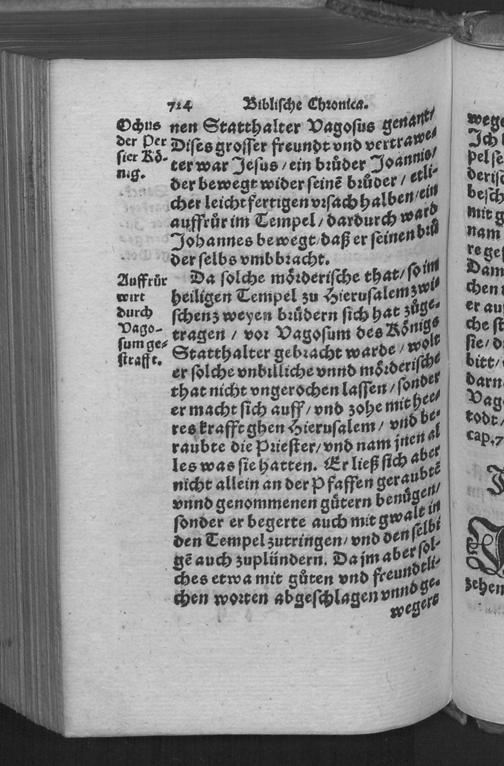 724 Biblische Chronica.
Ochus
der Per
sier Kö-
nig.
nen Statthalter Vagosus genant/
Dises grosser freundt vnd vertrawe-
ter war Jesus/ein brůder Joannis/
der bewegt wider seinē brůder/etli-
cher leichtfertigen vrsach halben/ein
auffrůr im Tempel/dardurch ward
Johannes bewegt/daß er seinen brů
der selbs vmbbracht.
Auffrůr
wirt
durch
Vago-
sum ge-
strafft.
Da solche mörderische that/so im
heiligen Tempel zu Hierusalem zwi
schenz weyen brüdern sich hat zůge-
tragen / vor Vagosum des Königs
Statthalter gebracht warde/wolt
er solche vnbilliche vnnd mörderische
that nicht vngerochen lassen/sonder
er macht sich auff/vnd zohe mit hee-
res krafft ghen Hierusalem/ vnd be-
raubte die Priester/vnd nam jnen al
les was sie hatten. Er ließ sich aber
nicht allein an der Pfaffen geraubtē
vnnd genommenen gütern benügen/
sonder er begerte auch mit gwalt in
den Tempel zutringen/vnd den selbi
gē auch zuplündern. Da jm aber sol-
ches etwa mit gůten vnd freundtli-
chen worten abgeschlagen vnnd ge-
wegers
wege
Ich
pel se
deris
besch
mit g
nam
re ge
Dam
chen
er au
che st
sie/
bitt/
darn
Vag
todt/
cap.7
zehen